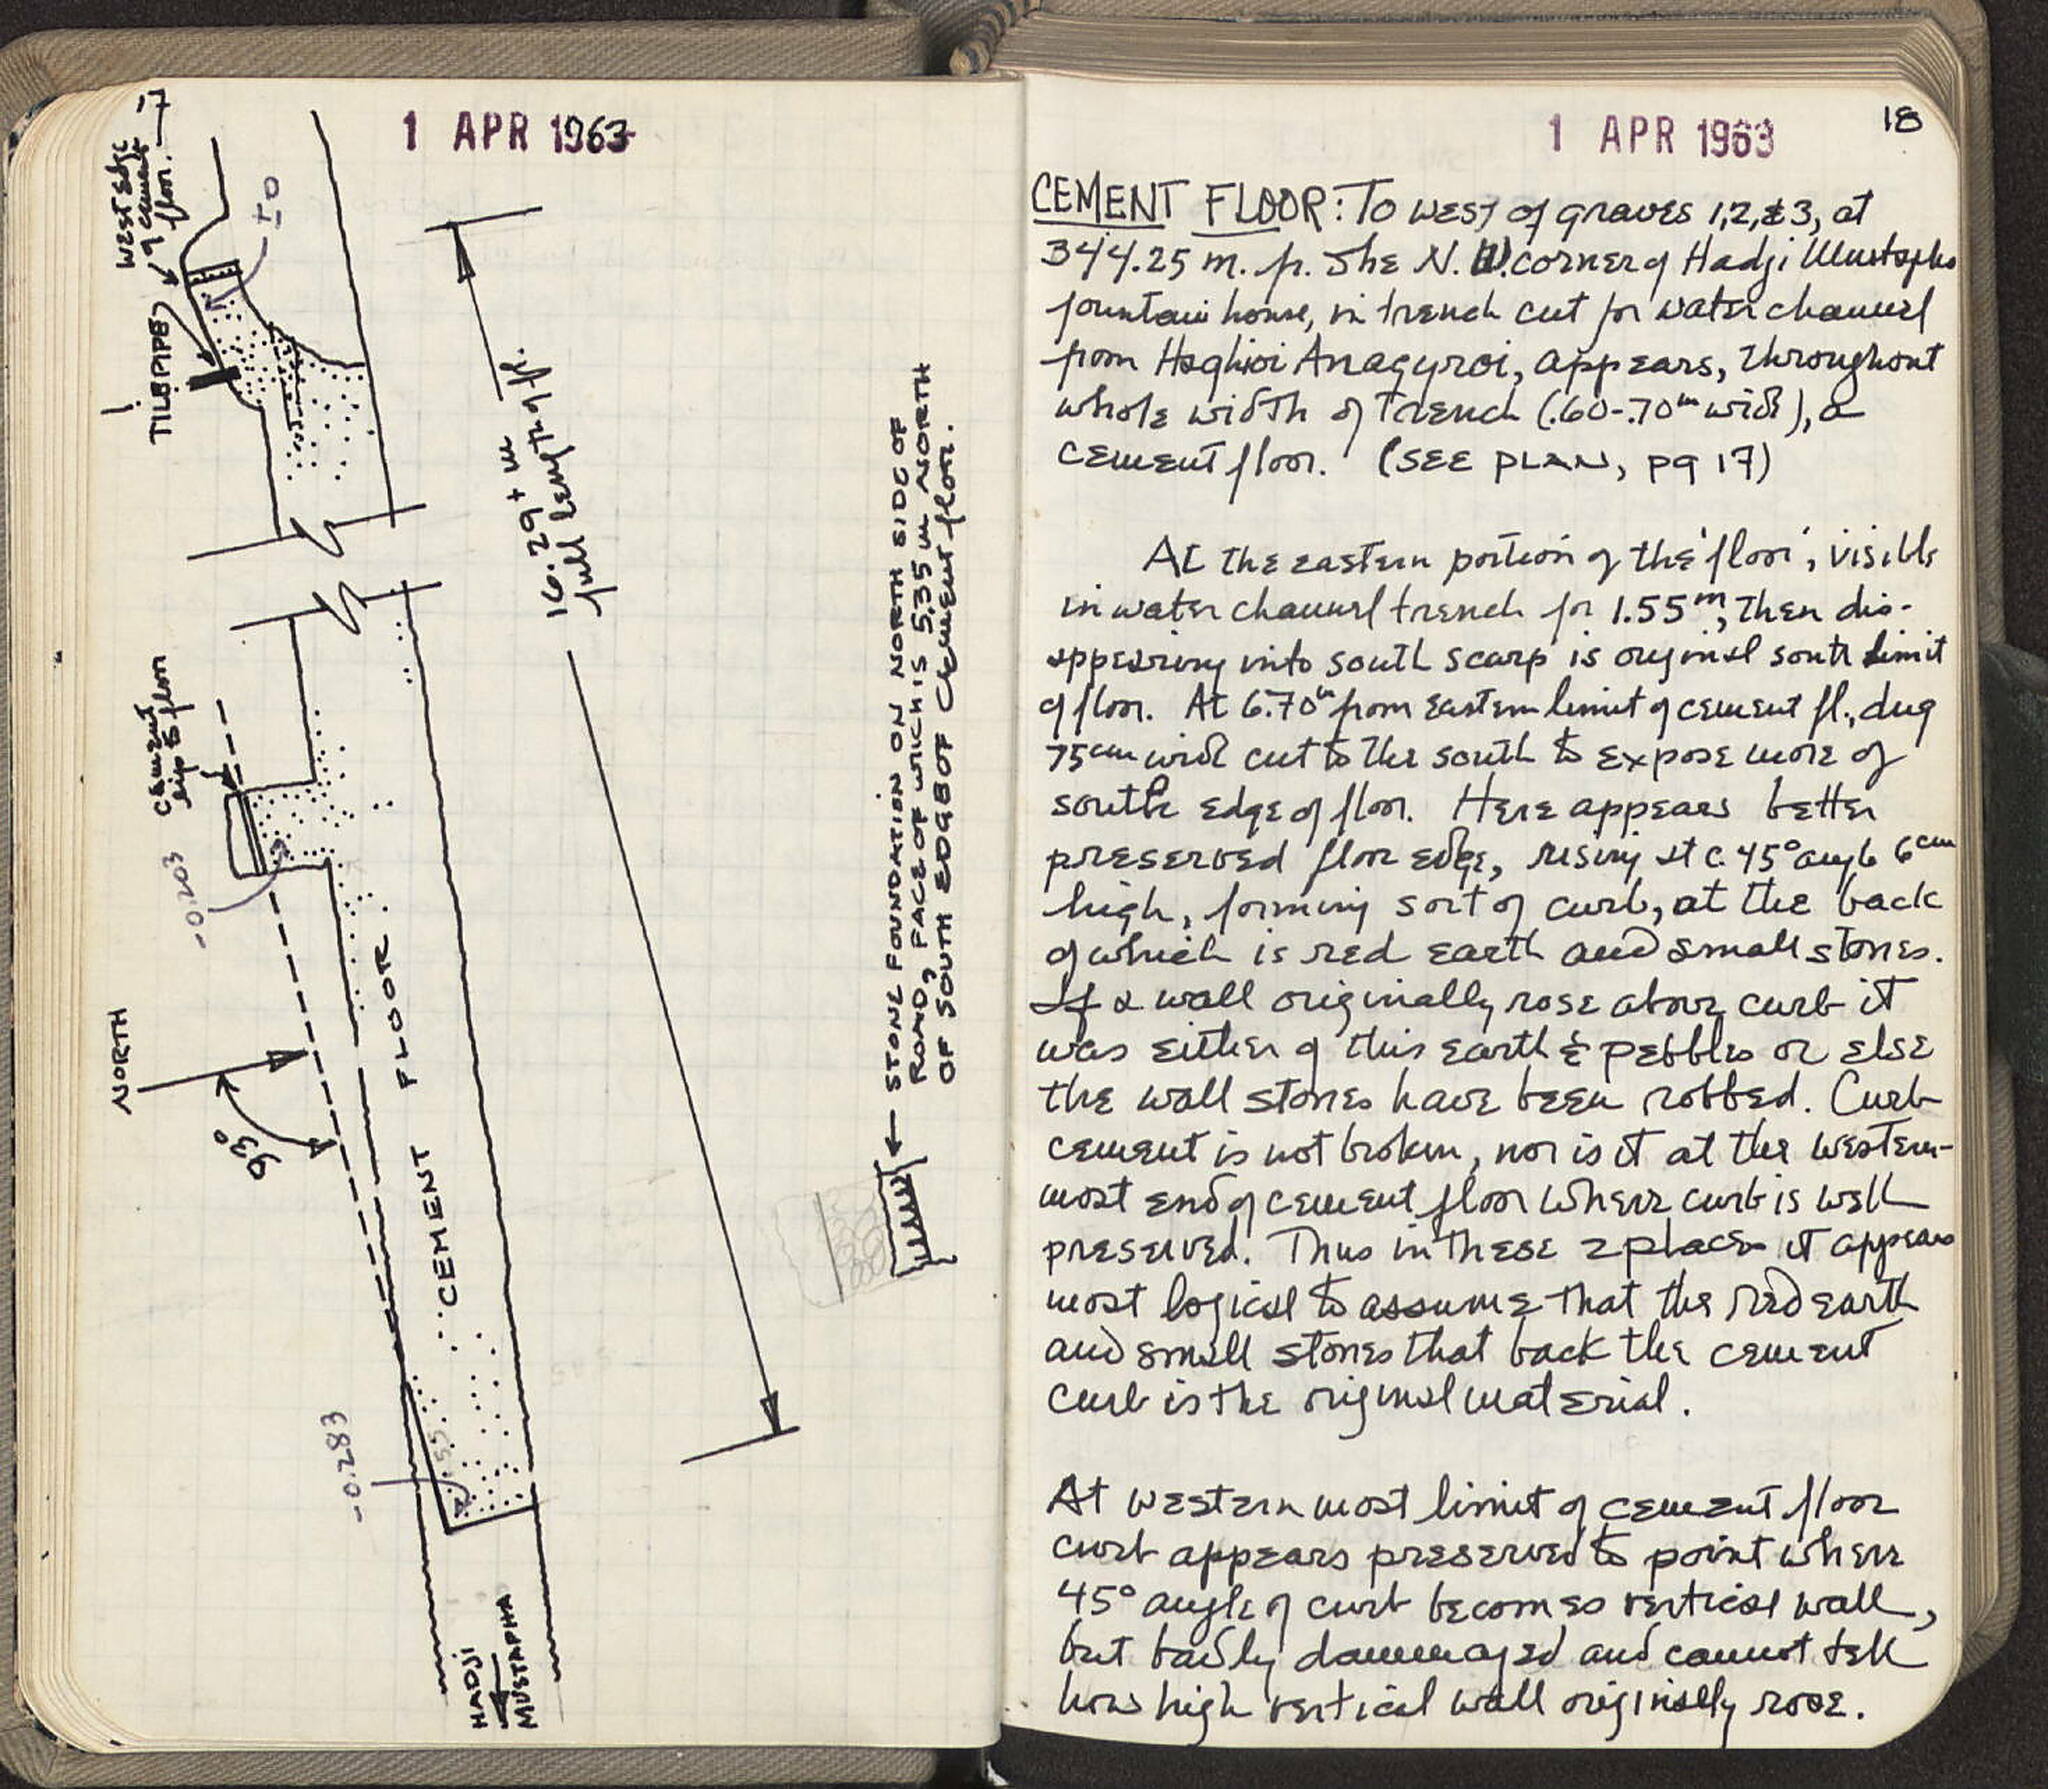 1 APR 1963
17
West Edge
of cement
floor.
TILE PIPE
±0
16.29 + m
full length of fl.
cement
lip to floor
-0.203
NORTH
93°
CEMENT FLOOR
-0.283
1.55
HADJI
MUSTAPHA
← STONE FOUNDATION ON NORTH SIDE OF
ROAD, FACE OF WHICH IS 5.35 m NORTH
OF SOUTH EDGE OF Cement floor.
1 APR 1963
18
CEMENT FLOOR: To west of graves 1, 2, & 3, at
344.25 m. fr. the N.W. corner of Hadji Mustapha
fountain house, in trench cut for water channel
from Haghioi Anagyroi, appears, throughout
whole width of trench (.60-.70m wide), a
cement floor. (SEE PLAN, pg 17)
At the eastern portion of the 'floor', visible
in water channel trench for 1.55m, then dis-
appearing into south scarp is original south limit
of floor. At 6.70m from eastern limit of cement fl., dug
75cm wide cut to the south to expose more of
south edge of floor. Here appears better
preserved floor edge, rising at c. 45° angle 6cm
high, forming sort of curb, at the back
of which is red earth and small stones.
If a wall originally rose above curb it
was either of this earth & pebbles or else
the wall stones have been robbed. Curb
cement is not broken, nor is it at the western-
most end of cement floor where curb is well
preserved. Thus in these 2 places it appears
most logical to assume that the red earth
and small stones that back the cement
curb is the original material.
At western most limit of cement floor
curb appears preserved to point where
45° angle of curb becomes vertical wall,
but badly dammaged and cannot tell
how high vertical wall originally rose.